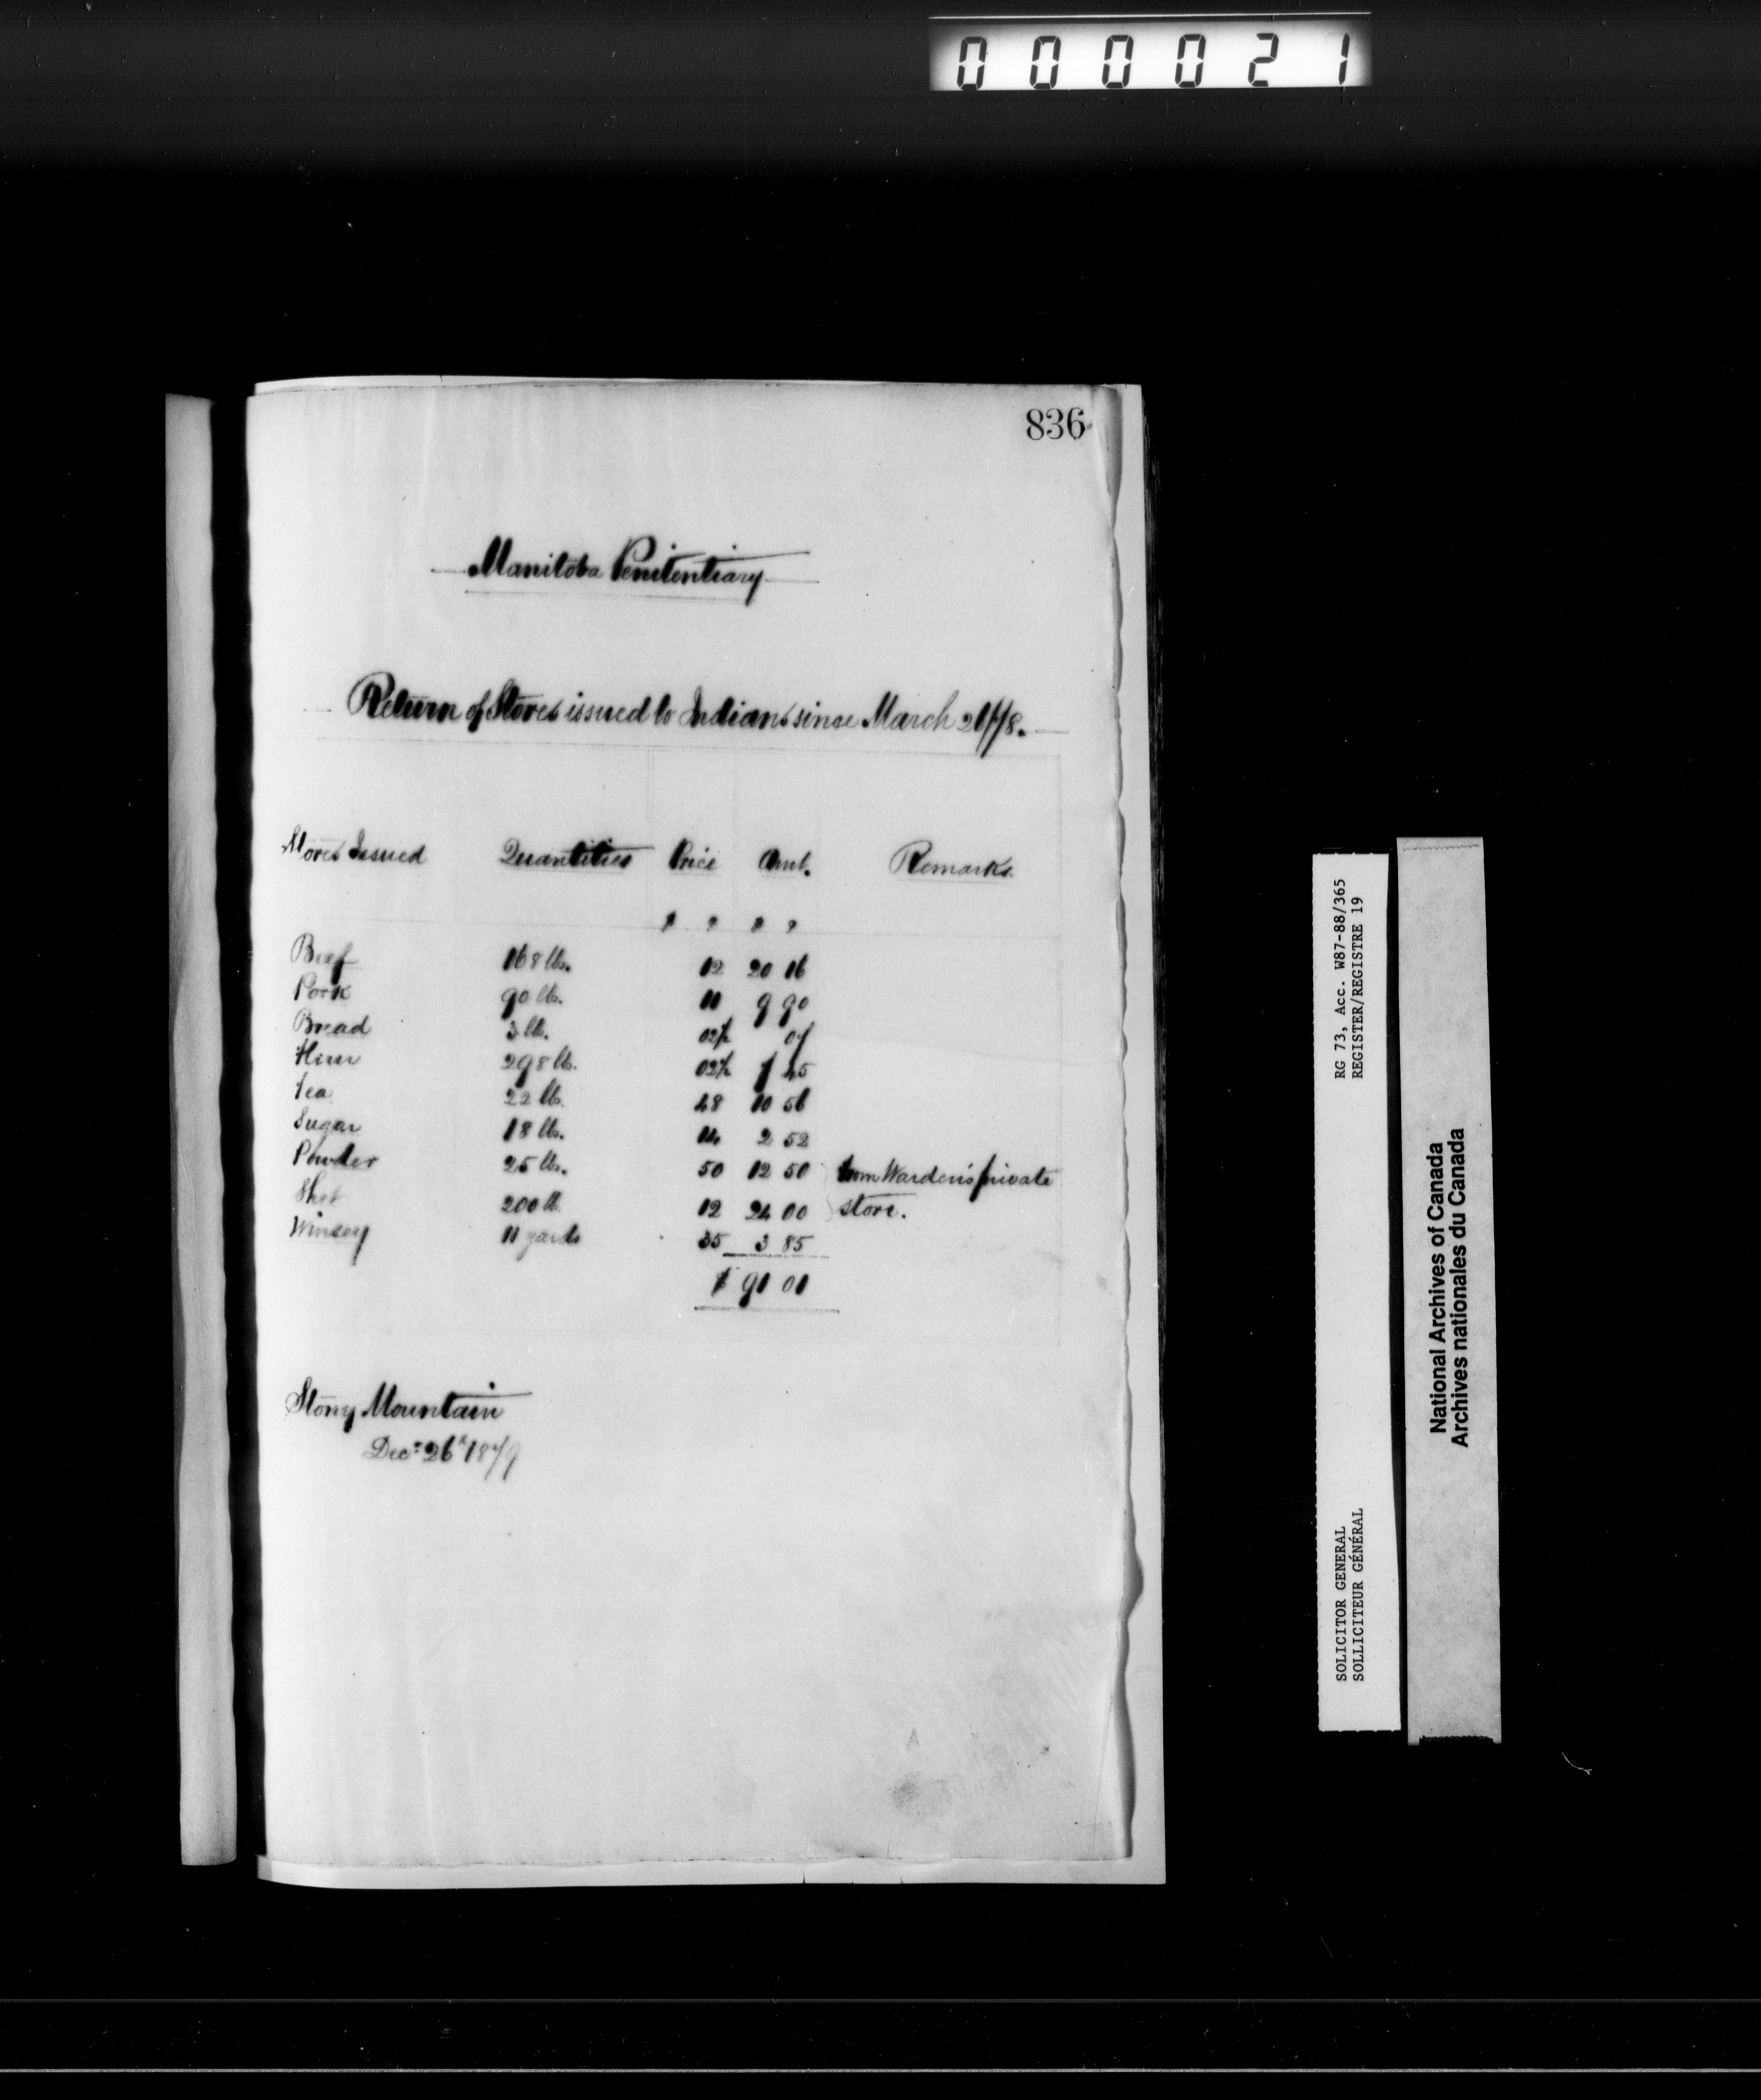 000021
836
Manitoba Penitentiary
Return of Stores issued to Indians since March
Stores Issued Quantities Price Amt. Remarks
$ ¢ $ ¢
Beef 168 lbs. 12 20 16
Pork 90 lbs. 11 9 90
Bread 3 lb. 02½ 07
Flour 298 lbs. 02½ 7 45
Tea 22 lbs. 48 10 56
Sugar 18 lbs. 14 2 52
Powder 25 lbs. 50 12 50 from Warden's private
Shot 200 lb 12 24 00 store.
Winsey 11 yards 35 3 85
$ 91 01
Stony Mountain
Decr 26th 1879
RG 73, Acc. W87-88/365
REGISTER/REGISTRE 19
SOLICITOR GENERAL
SOLLICITEUR GÉNÉRAL
National Archives of Canada
Archives nationales du Canada